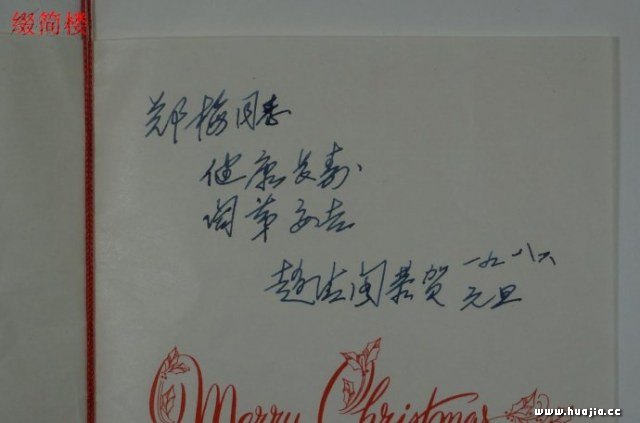 缀简楼
郑梅同志
健康长寿
阖第安吉
趙清阁恭贺 一九八六
元旦
Merry Christmas
www.huajia.cc